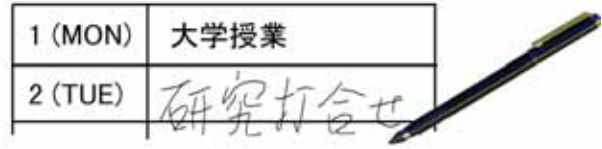 1 (MON) 大学授業
2 (TUE) 研究打合せ